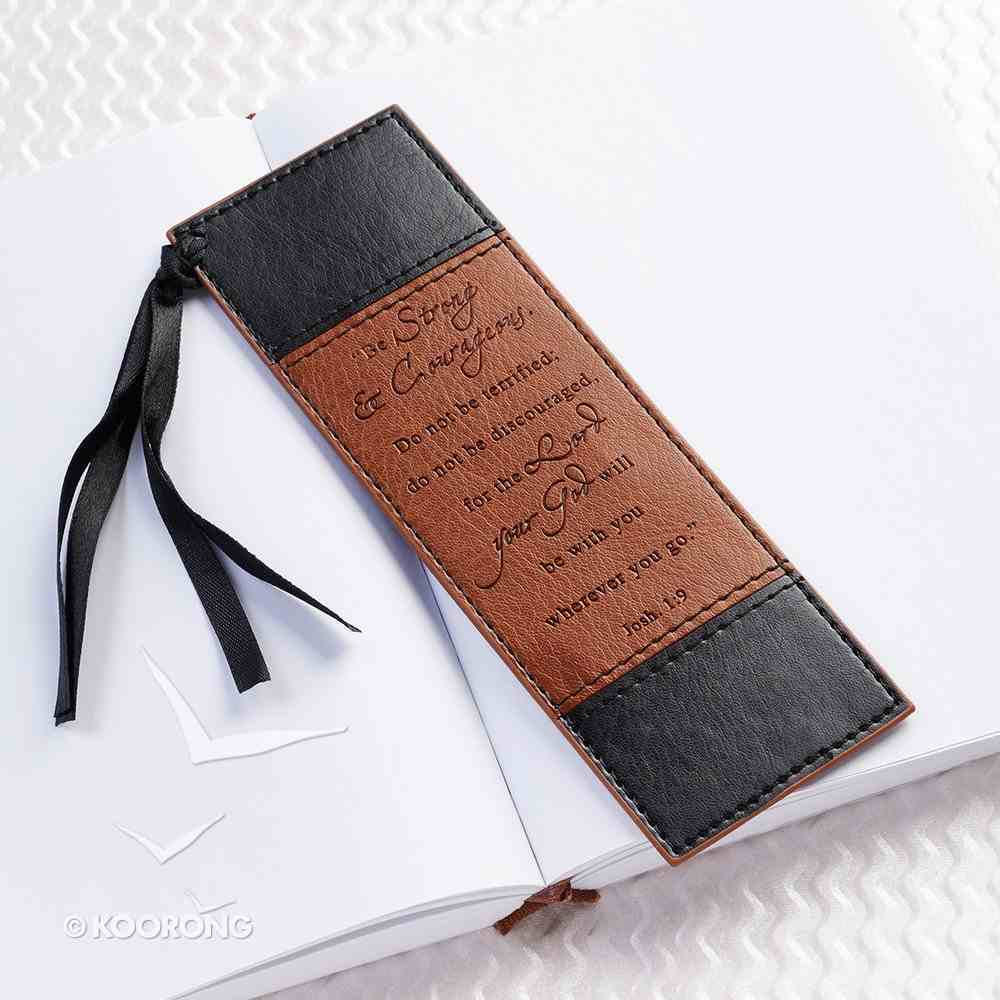 "Be Strong
& Courageous.
Do not be terrified;
do not be discouraged,
for the Lord
your God will
be with you
wherever you go."
Josh. 1.9
© KOORONG